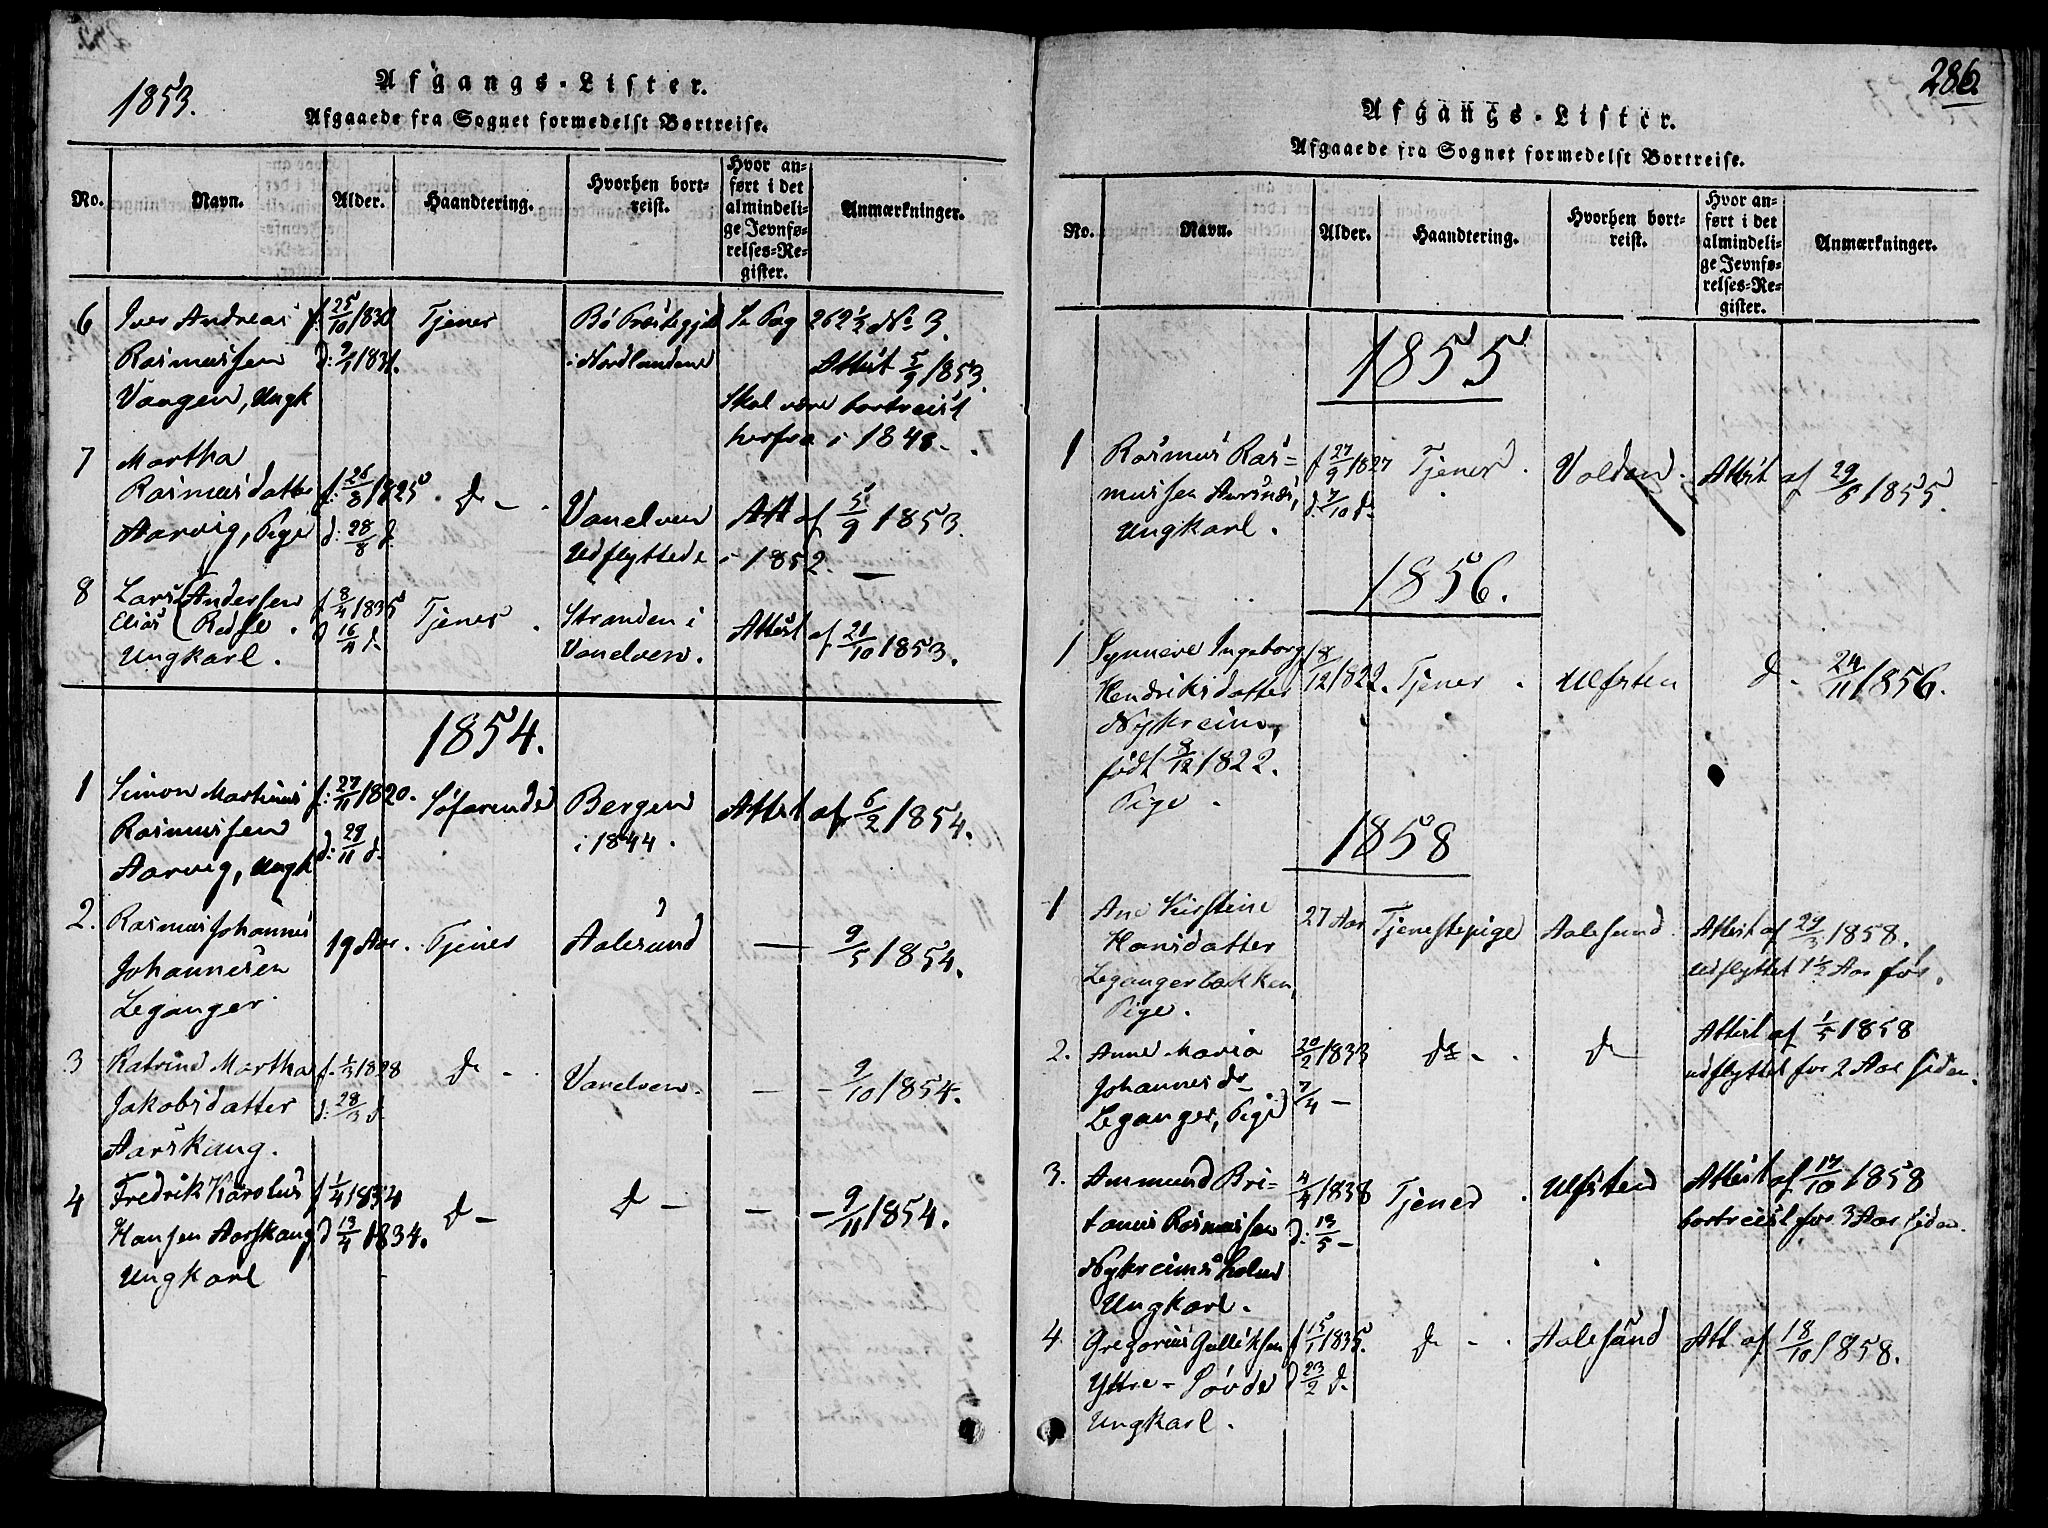 1853.
Afgangs-Lister.
Afgaaede fra Sognet formedelst Bortreise.
No. Navn. Alder. Haandtering. Hvorhen bortreist. Hvor anført i det almindelige Jevnførelses-Register. Anmærkninger.
6 Iver Andreas f. 25/10 1830 Tjener Bø Præstegjeld Se Pag 262 1/2 No 3.
Rasmussen d: 1831. i Nordlandene Attest 5/9 1853.
Vaagen, Ungk Skal være bortreist
herfra i 1848.
7 Martha
Rasmusdatter f: 26/8 1825 do - Vanelven Att af 5/9 1853.
Aarvig, Pige d: 28/8 do Udflyttede i 1852. —
8 Lars Andersen f 8/4 1835 Tjener Stranden i Attest af 21/10 1853.
Elias d 16/4 d. Vanelven.
Ungkarl.
1854.
1 Simon Martinus f: 27/11 1820. Søfarende Bergen Attest af 6/2 1854.
Rasmussen d: 29/11 d. i 1844.
Aarvig, Ungk
2. Rasmus Johannes 19 Aar. Tjener Aalesund — 9/5 1854.
Johannesen
Leganger
3 Katrine Martha f. 1/3 1828 do - Vanelven. — - 9/10 1854.
Jakobsdatter d: 28/3 d.
Aarskaug.
4 Fredrik Karolus f 1/4 1834 do - do - — - 9/11 1854.
Hansen Aarskaug d 13/4 1834.
Ungkarl
286.
Afgangs-Lister.
Afgaaede fra Sognet formedelst Bortreise.
No. Navn. Alder. Haandtering. Hvorhen bortreist. Hvor anført i det almindelige Jevnførelses-Register. Anmærkninger.
1855
1 Rasmus Ras= f 27/9 1827 Tjener. Volden. Attest af 1855.
mussen Aursnæs, d. 7/10 d.
Ungkarl.
1856.
1 Synneve Ingeborg 8/12 1822. Tjener. Ulfsten do. 24/11 1856.
Hendriksdatter
Nykreim,
født 8/12 1822.
Pige.
1858
1 Ane Kirstine 27 Aar Tjenestepige Aalesund. Attest af 29/3 1858.
Hansdatter udflyttet 1 1/2 Aar før.
Legangerbakken,
Pige.
2. Anne Maria 20/2 1833 do - do Attest af 1/5 1858
Johannesdr 7/4 — udflyttet for 2 Aar siden.
Leganger, Pige
3. Ammund Bri- 4/4 1838 Tjener. Ulfsten Attest af 17/10 1858
tanus Rasmussen d: 13/5 - bortreist for 3 Aar siden.
Nykreimsholm
Ungkarl.
4. Gregorius Gulliksen f 15/1 1835. do - Aalesund Att af 18/10 1858.
Yttre-Søvde d 23/2 d.
Ungkarl.